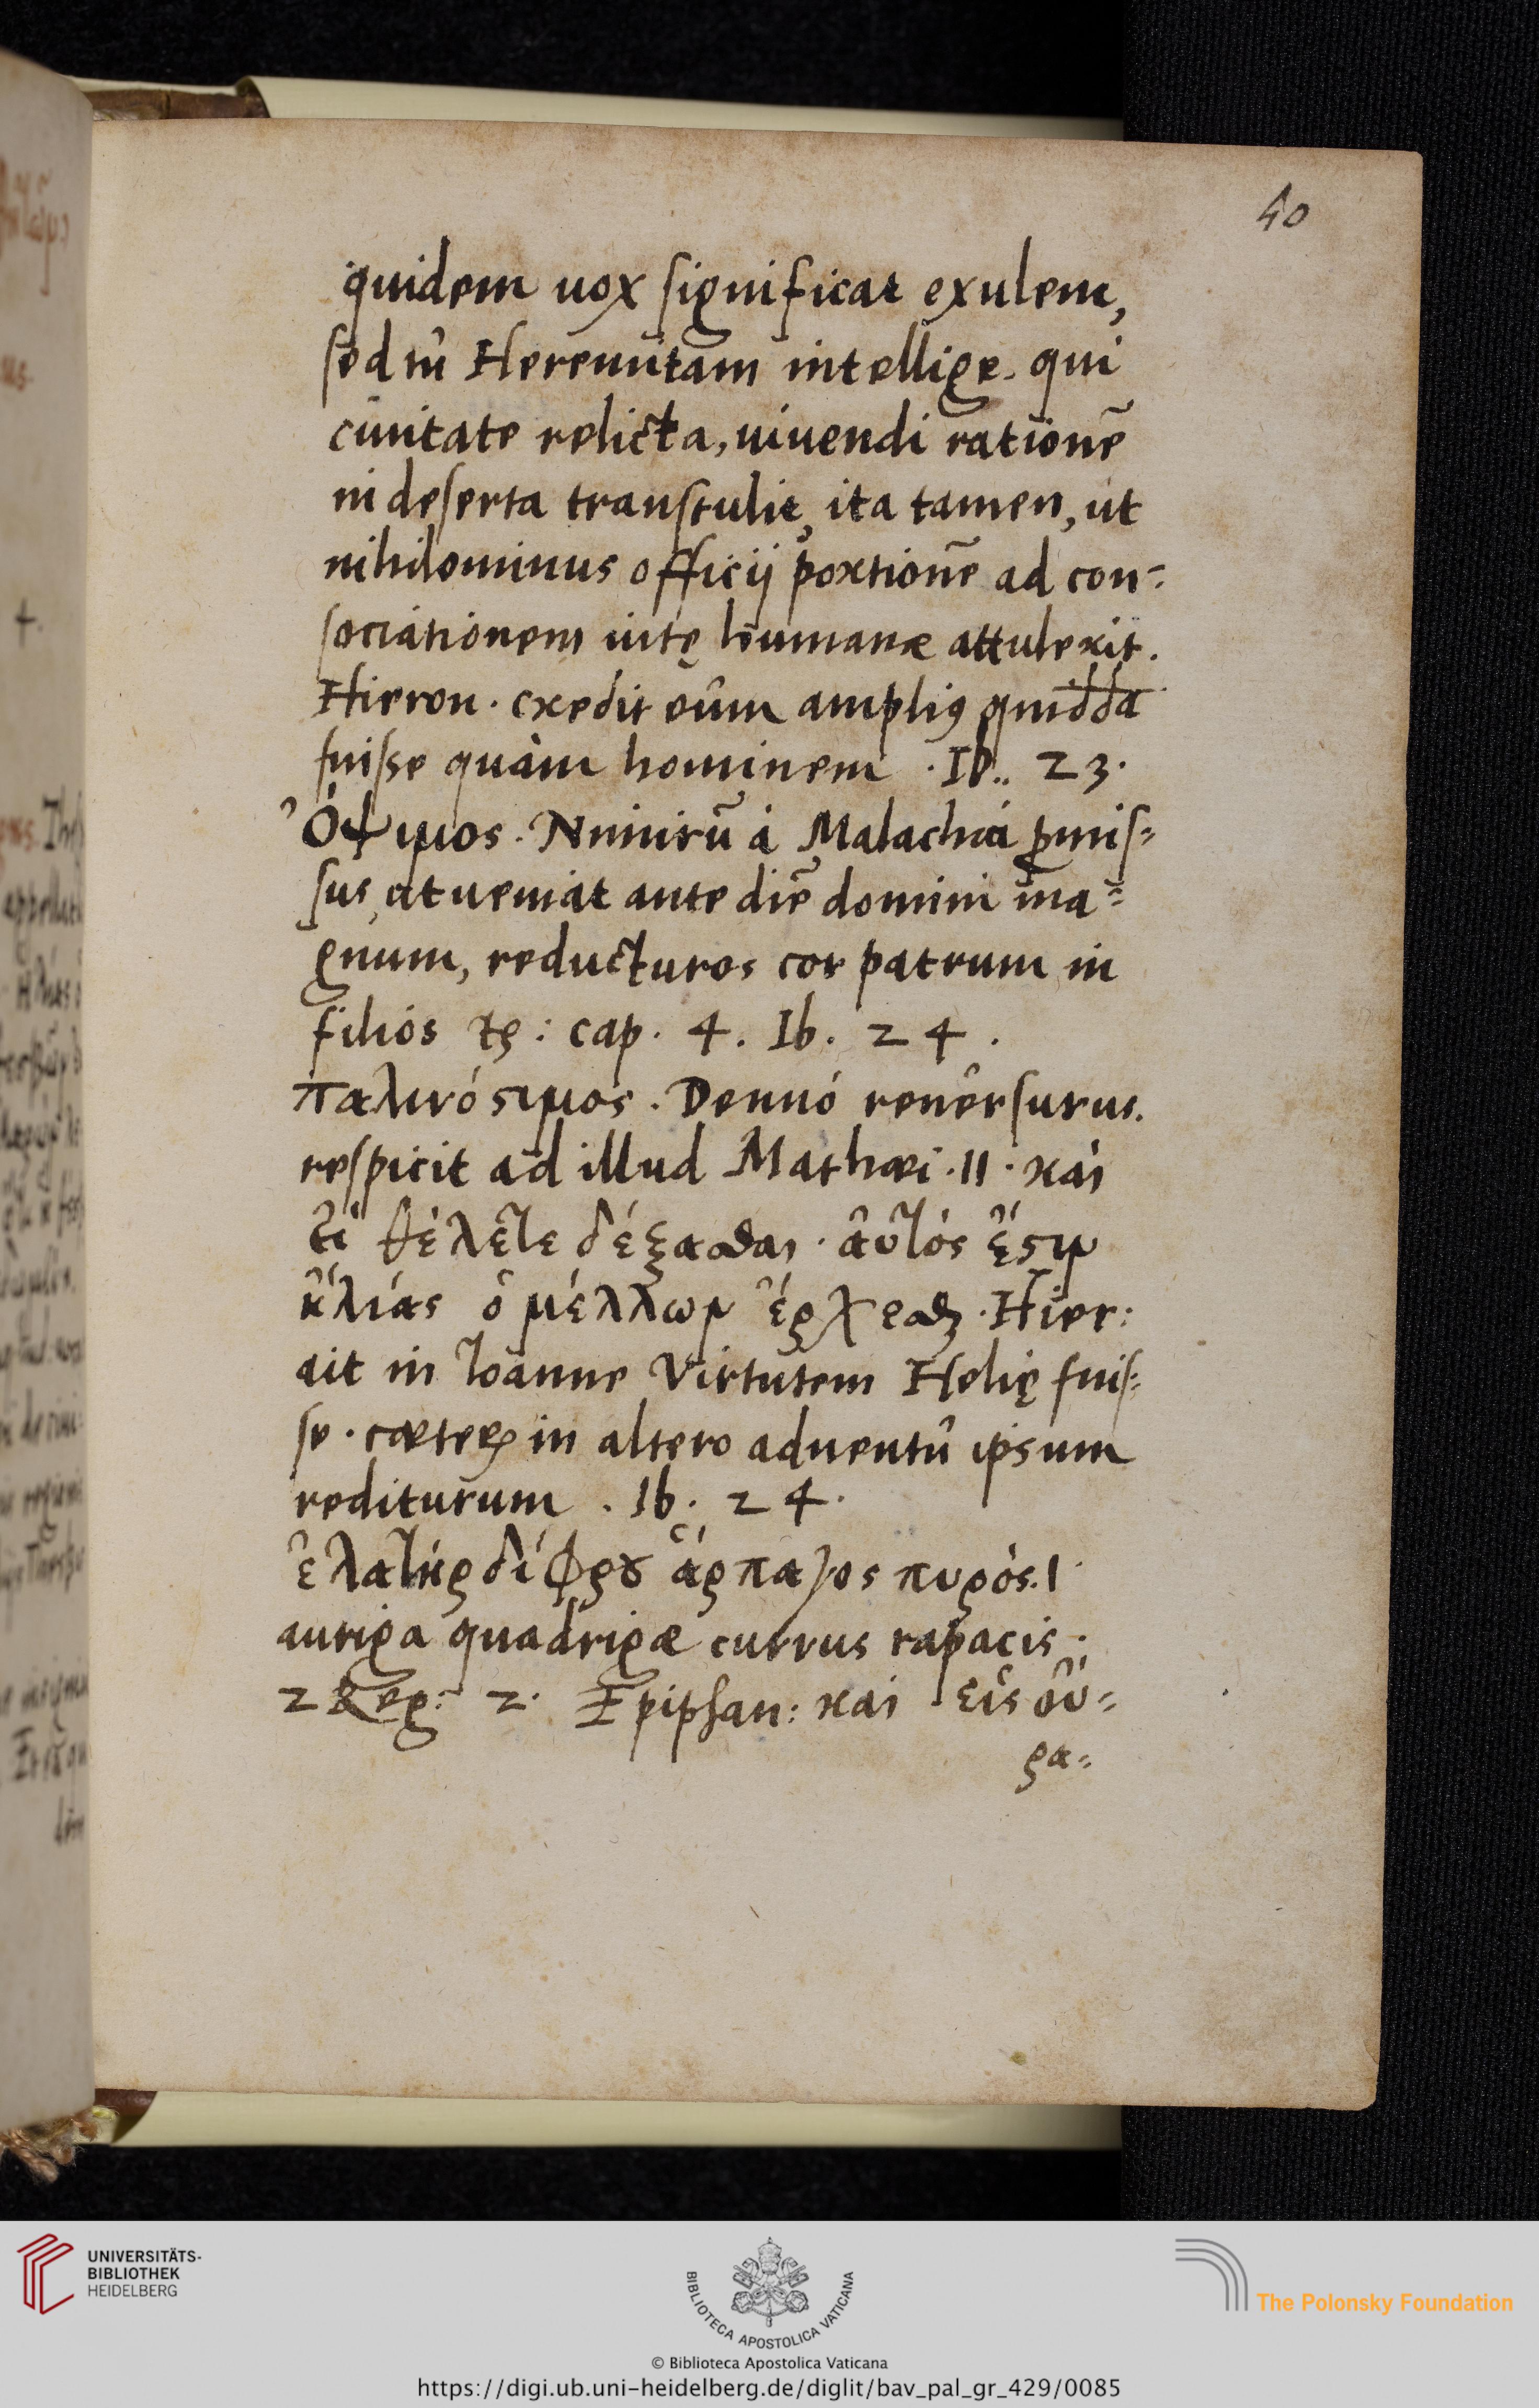 40
quidem uox significat exulem,
sed tû Heremitam intellige. qui
ciuitate relicta, uiuendi rationẽ
in deserta transtulit, ita tamen, ut
nihilominus officij portionẽ ad con-
sociationem uitę humanæ attulerit.
Hieron. credit eûm amplius quidda
fuisse quàm hominem . Ib.. 23.
Ὄψιμος. Nimirũ á Malachia ꝓmis-
sus, ut ueniat ante diẽ domini ma-
gnum, reducturos cor patrum in
filiós &c: cap. 4. Ib. 24.
παλινόστιμος. Denuó reuêrsurus.
respicit ad illud Mathæi. 11. καὶ
εἰ θέλετε δέξασθαι. αὐτός ἐστιν
ἠλίας ὁ μέλλων ἔρχεσθαι. Hier:
ait in Ioanne Virtutem Helię fuis-
se. cæterum in altero aduentû ipsum
rediturum . Ib. 24.
ἐλατὴρ δίφρου ἅρπαγος πυρός. 1
auriga quadrigæ currus rapacis.
2 Reg: 2. Epiphan: καὶ εἰς οὐ-
ρα-
UNIVERSITÄTS-
BIBLIOTHEK
HEIDELBERG
BIBLIOTECA APOSTOLICA VATICANA
The Polonsky Foundation
© Biblioteca Apostolica Vaticana
https://digi.ub.uni-heidelberg.de/diglit/bav_pal_gr_429/0085